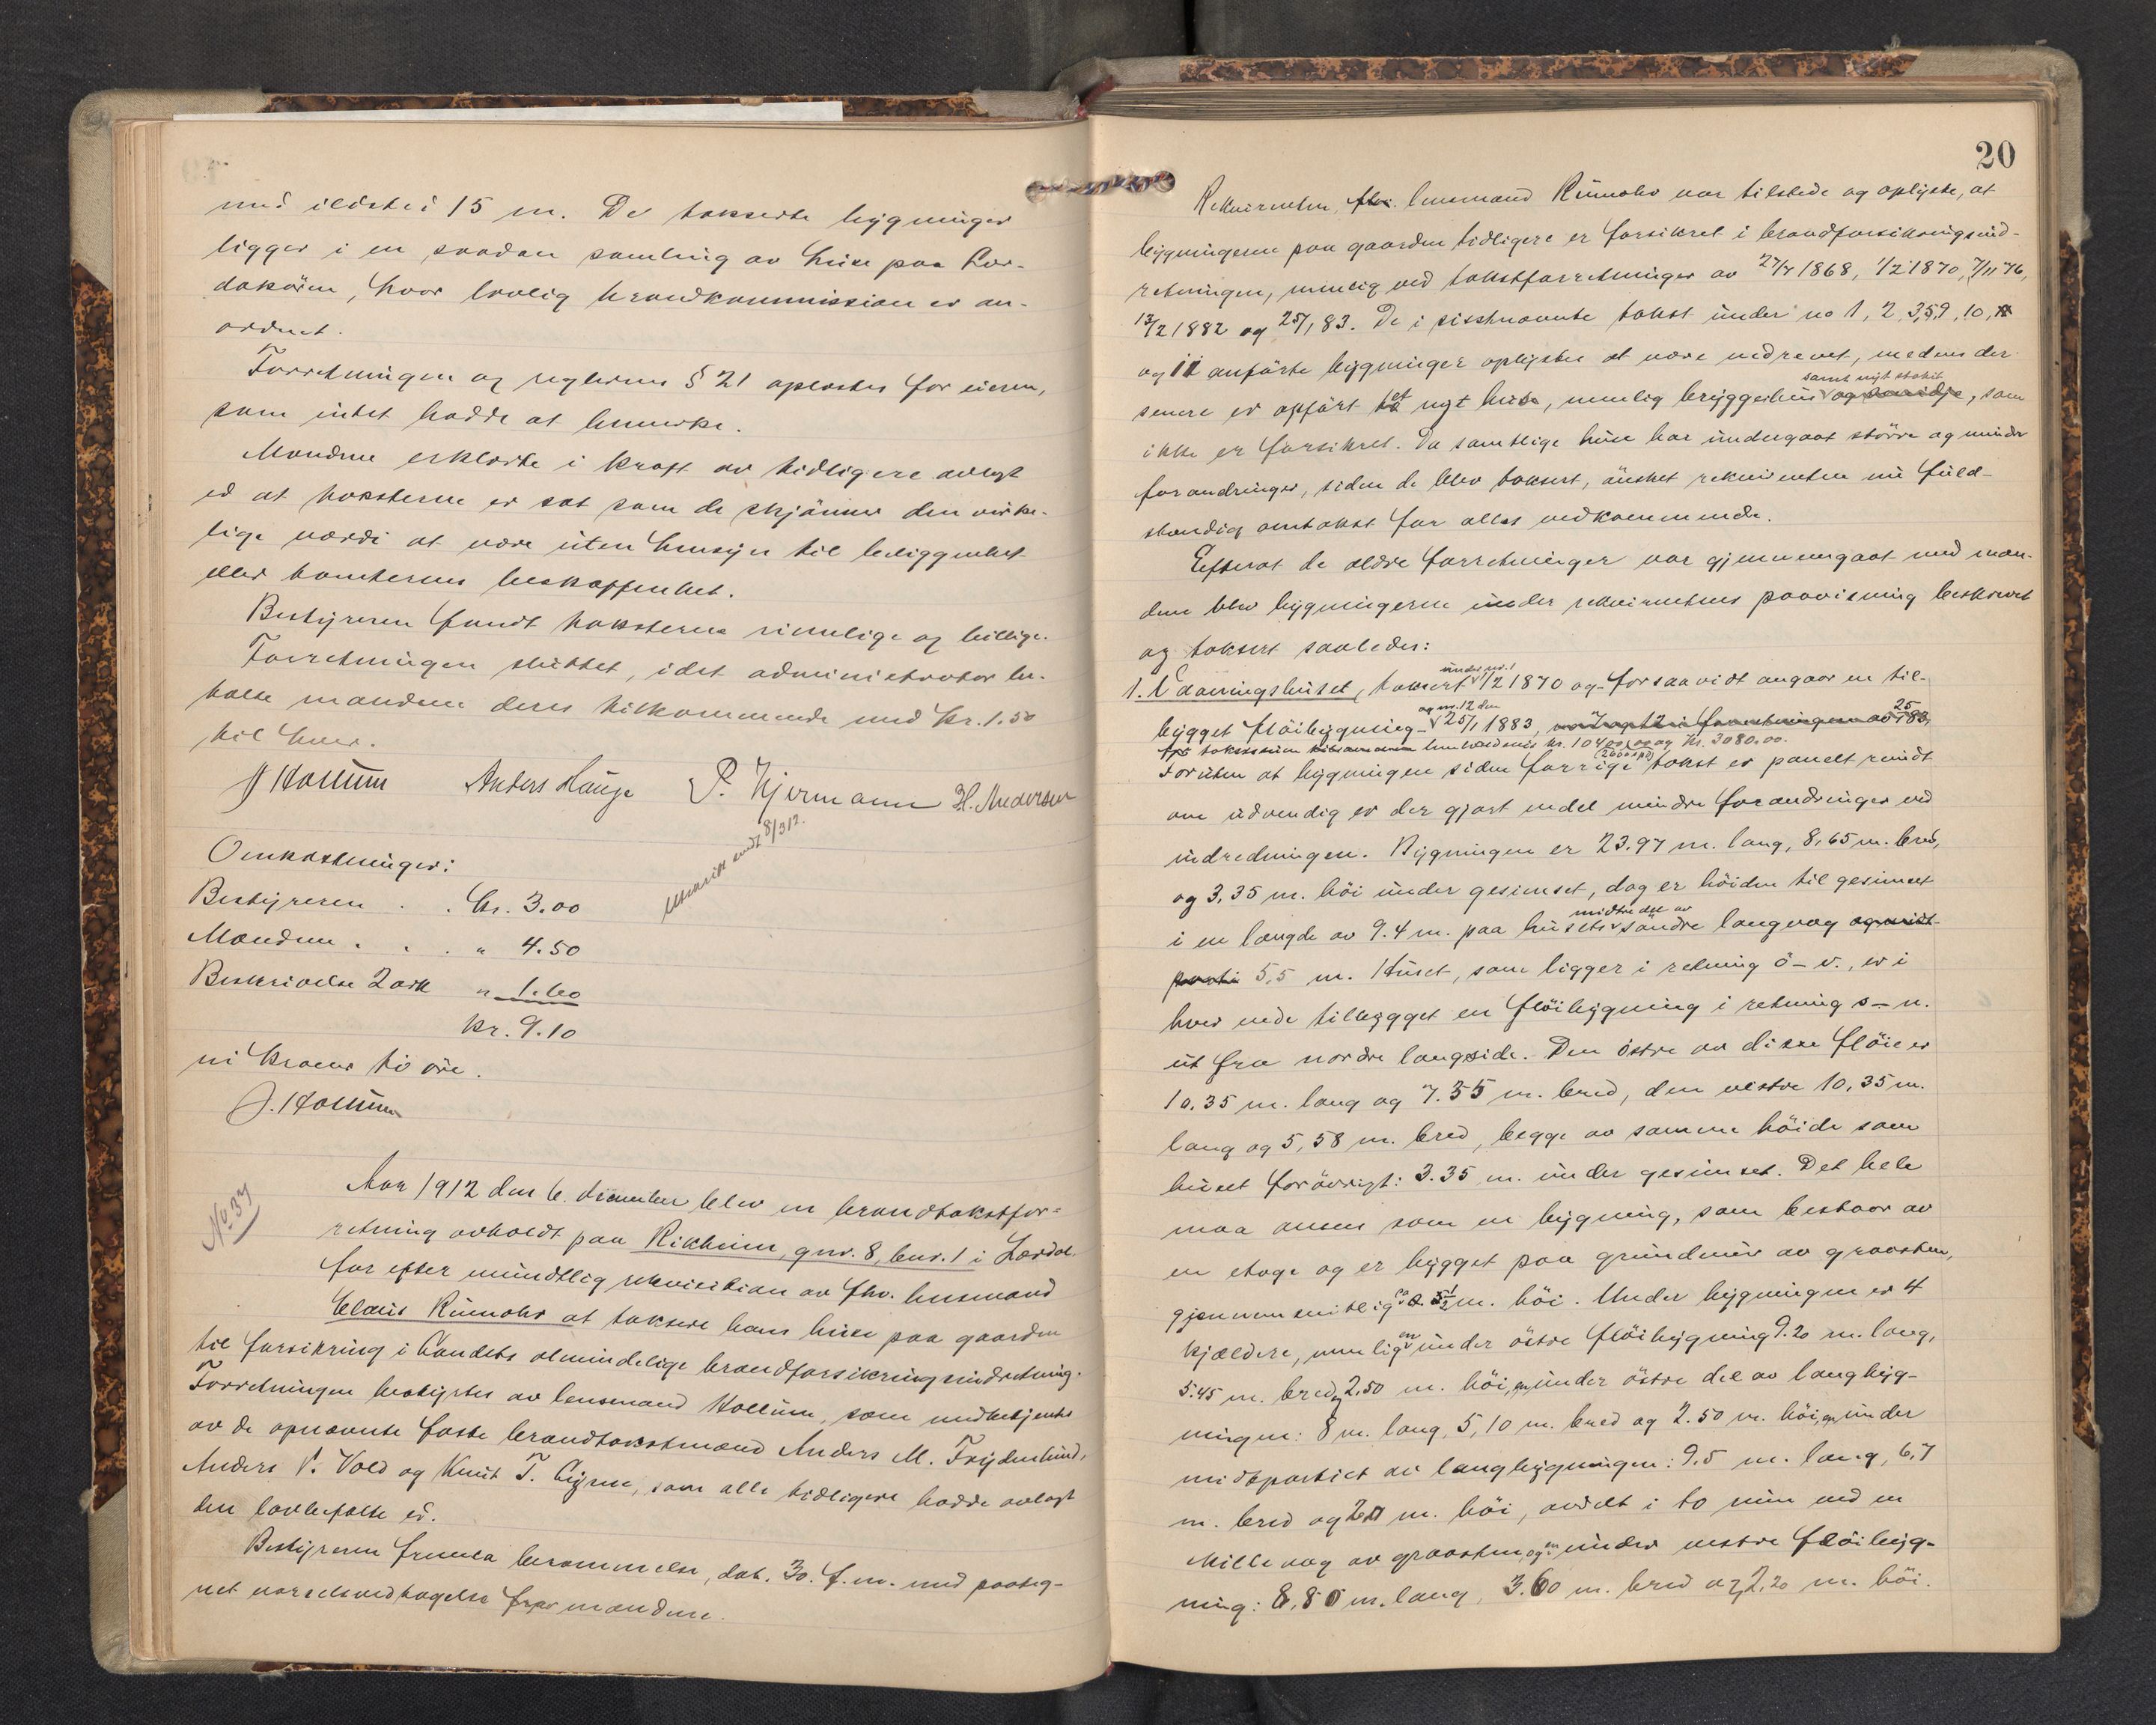 med ildsted 15 m. De takserte bygninger
ligger i en saadan samling av huse paa Lær-
dalsøren, hvor lovlig brandkommission er an-
ordnet.
Forretningen og reglernes § 21 oplæstes for eieren,
som intet hadde at bemerke.
Mændene erklærte i kraft av tidligere avlagt
ed at taksterne er sat som de skjønner den virke-
lige værdi at være uten hensyn til beliggenhet
eller tomternes beskaffenhet.
Bestyreren fandt taksterne rimelige og billige.
Forretningen sluttet, idet administrator be-
talte mændene deres tilkommende med Kr. 1.50
til hver.
J Hollum Anders Hauge P. Hjermann H. Andersen
Utskrift sendt 8/3 12.
Omkostninger:
Bestyreren . . Kr. 3.00
Mændene . . . " 4.50
Beskrivelse 2 ark " 1.60
Kr. 9.10
ni kroner ti øre.
J. Hollum
No. 37
Aar 1912 den 6. december blev en brandtakstfor-
retning avholdt paa Rikheim, gnr. 8, bnr. 1 i Lærdal
for efter mundtlig rekvisition av fhv. lensmand
Claus Rumohr at taksere hans huse paa gaarden
til forsikring i Landets almindelige brandforsikringsindretning.
Forretningen bestyrtes av lensmand Hollum, som medbetjentes
av de opnævnte faste brandtakstmænd Anders M. Frydenlund,
Anders P. Vold og Knut T. Ljøsne, som alle tidligere hadde avlagt
den lovbefalte ed.
Bestyreren fremla berammelse, dat. 30. f.m. med paateg-
net varselsvedtagelse fra mændene.
20
Rekvirenten, fhv. lensmand Rumohr var tilstede og oplyste, at
bygningerne paa gaarden tidligere er forsikret i brandforsikringsind-
retningen, nemlig ved takstforretninger av 27/7 1868, 1/2 1870, 7/11 76,
13/2 1882 og 25/1 83. De i sisstnævnte takst under no 1, 2, 3, 5, 9, 10,
og 11 anførte bygninger oplystes at være nedrevet, medens der
senere er opført et nyt hus, nemlig bryggerhus samt nyt stakit, som
ikke er forsikret. Da samtlige huse har undergaat større og mindre
forandringer, siden de blev taksert, ønsket rekvirenten nu fuld-
stændig omtakst for alles vedkommende.
Efterat de ældre forretninger var gjennemgaat med mæn-
dene blev bygningerne under rekvirentens paavisning beskrevet
og taksert saaledes:
1. Vaaningshuset, taksert under nr. 1 1/2 1870 og forsaavidt angaar en til-
bygget fløibygning og nr. 12 den 25/1 1883,
takstsum henholdsvis kr. 10400,00 (2600 spd) og kr. 3080.00.
Foruten at bygningen siden forrige takst er panelt rundt
om utvendig er der gjort endel mindre forandringer ved
indredningen. Bygningen er 23.97 m. lang, 8,65 m. bred,
og 3,35 m. høi under gesimset, dog er høiden til gesimset
i en længde av 9.4 m. paa husets midtre del av søndre langvæg
5,5 m. Huset, som ligger i retning ø-v., er i
hver ende tilbygget en fløibygning i retning s-n.
ut fra nordre langside. Den østre av disse fløie er
10,35 m. lang og 7.35 m. bred, den vestre 10,35 m.
lang og 5,58 m. bred, begge av samme høide som
huset forøvrigt: 3.35 m. under gesimset. Det hele
maa ansees som en bygning, som bestaar av
en etage og er bygget paa grundmur av graasten,
gjennemsnitlig ca 1/2 m. høi. Under bygningen er 4
kjældere, nemlig en under østre fløibygning 9.20 m. lang,
5.45 m. bred og 2,50 m. høi, en under østre del av langbyg-
ningen: 8 m. lang, 5,10 m. bred og 2.50 m. høi, en under
midtpartiet av langbygningen: 9.5 m. lang, 6,7
m. bred og m. høi, avdelt i to rum ved en
skillevæg av graasten, og en under vestre fløibyg-
ning: 8,80 m. lang, 3.60 m. bred og 2,20 m. høi.